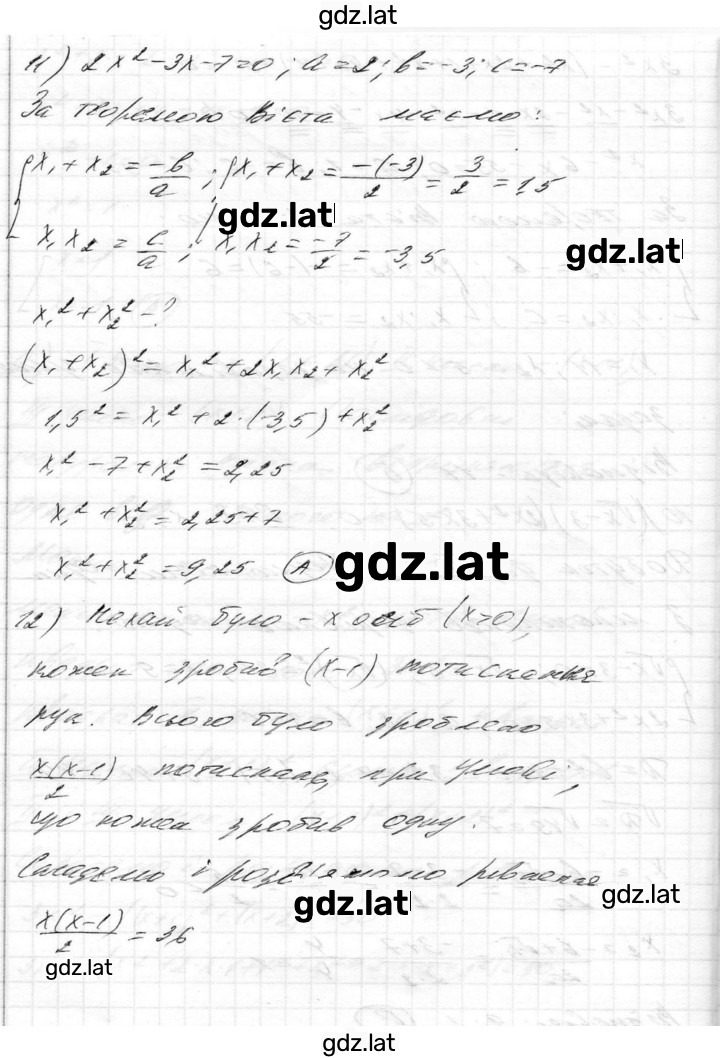 gdz.lat
11) 2x² - 3x - 7 = 0; a = 2; b = -3; c = -7
За теоремою Вієта маємо:
{x₁ + x₂ = -b/a ; {x₁ + x₂ = -(-3)/2 = 3/2 = 1,5
gdz.lat
x₁x₂ = c/a ; x₁x₂ = -7/2 = -3,5
gdz.lat
x₁² + x₂² - ?
(x₁ + x₂)² = x₁² + 2x₁x₂ + x₂²
1,5² = x₁² + 2·(-3,5) + x₂²
x₁² - 7 + x₂² = 2,25
x₁² + x₂² = 2,25 + 7
x₁² + x₂² = 9,25 (А)
gdz.lat
12) Нехай було - x осіб (x>0),
кожен зробив (x-1) потискання
рук. Всього було зроблено
x(x-1)/2 потискань, при умові,
що кожен зробив одну.
Складемо і розв'яжемо рівняння
gdz.lat
gdz.lat
x(x-1)/2 = 36
gdz.lat
gdz.lat